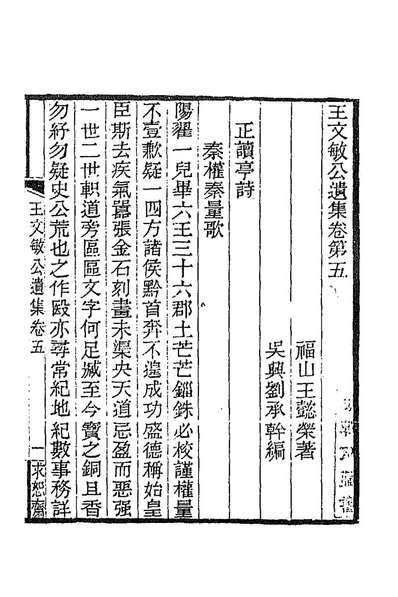 王文敏公遺集卷第五
福山王懿榮著
吳興劉承幹編
正讀亭詩
秦權秦量歌
陽翟一兒畢六王三十六郡土芒芒錙銖必校謹權量
不壹歉疑一四方諸侯黔首奔不遑成功盛德稱始皇
臣斯去疾氣囂張金石刻畫未渠央天道忌盈而惡强
一世二世軹道旁區區文字何足臧至今寶之銅且香
勿紓勿疑史公荒也之作殹亦尋常紀地紀數事務詳
王文敏公遺集卷五 一 求恕齋